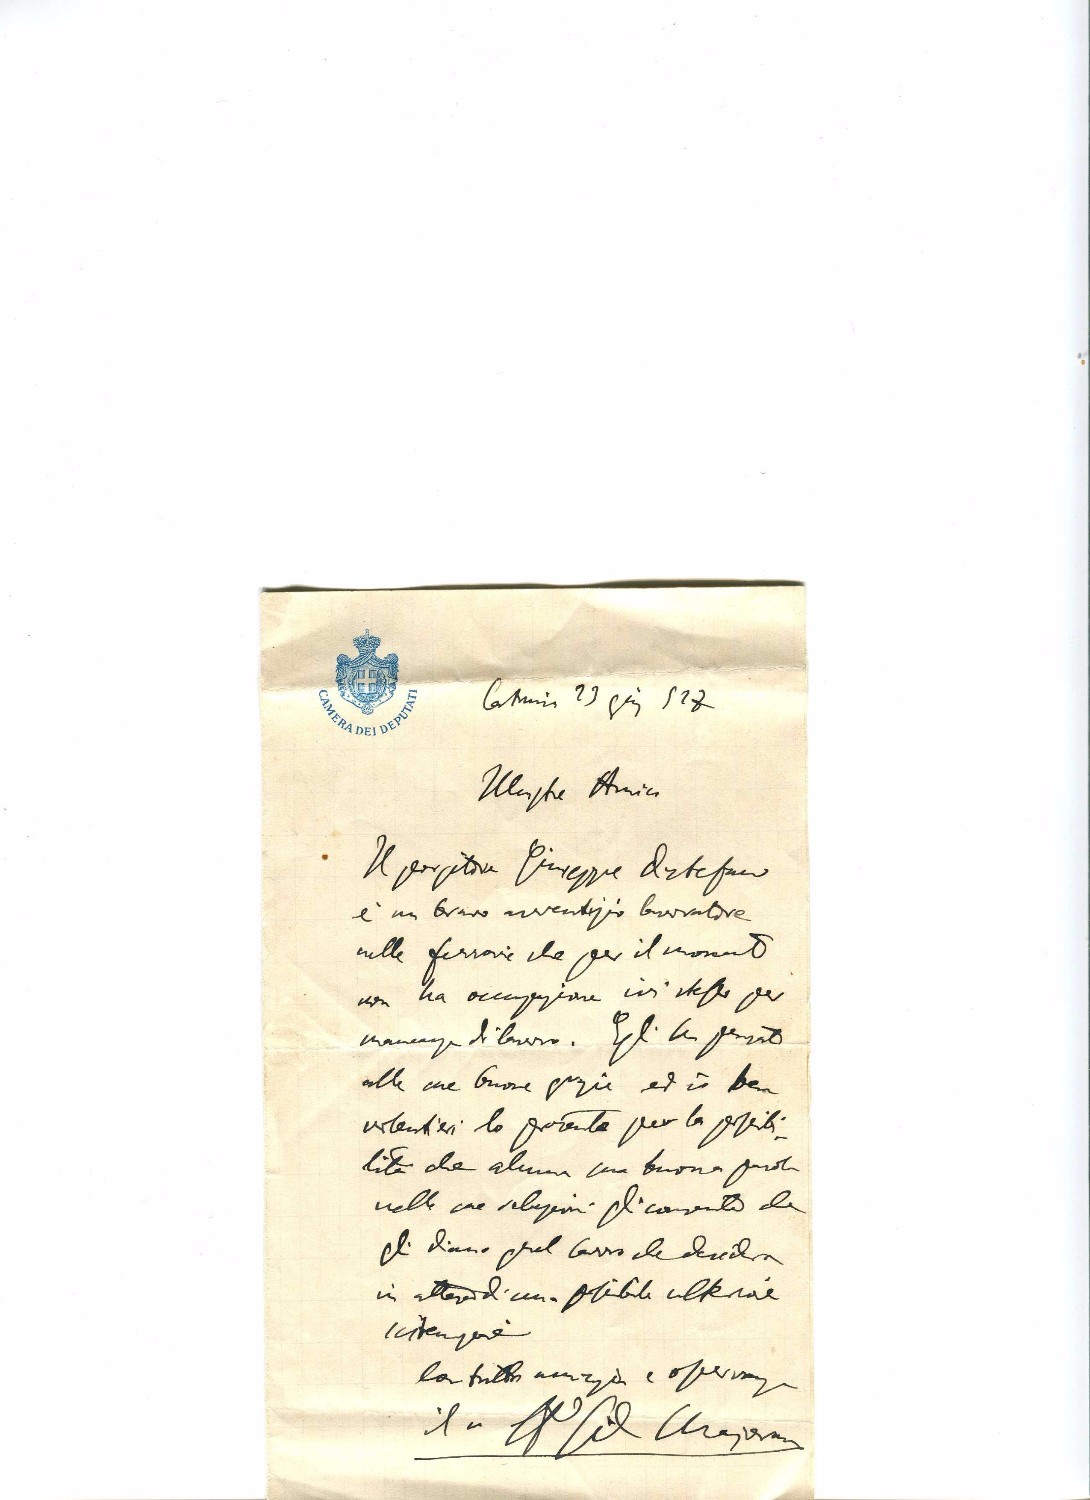 CAMERA DEI DEPUTATI
Catania 23 giu 927
Illustre Amico
Il porgitore Giuseppe Distefano
è un bravo avventizio lavoratore
nelle ferrovie che per il momento
non ha occupazione ivi stesso per
mancanza di lavoro. Egli ha pensato
alle sue buone grazie ed io ben
volentieri lo presento per la possibi-
lità che alcuna sua buona parola
nelle sue relazioni gli consenta che
gli diano quel lavoro che desidera
in attesa di una possibile ulteriore
Con tutta amicizia e osservanza
il suo Majorana